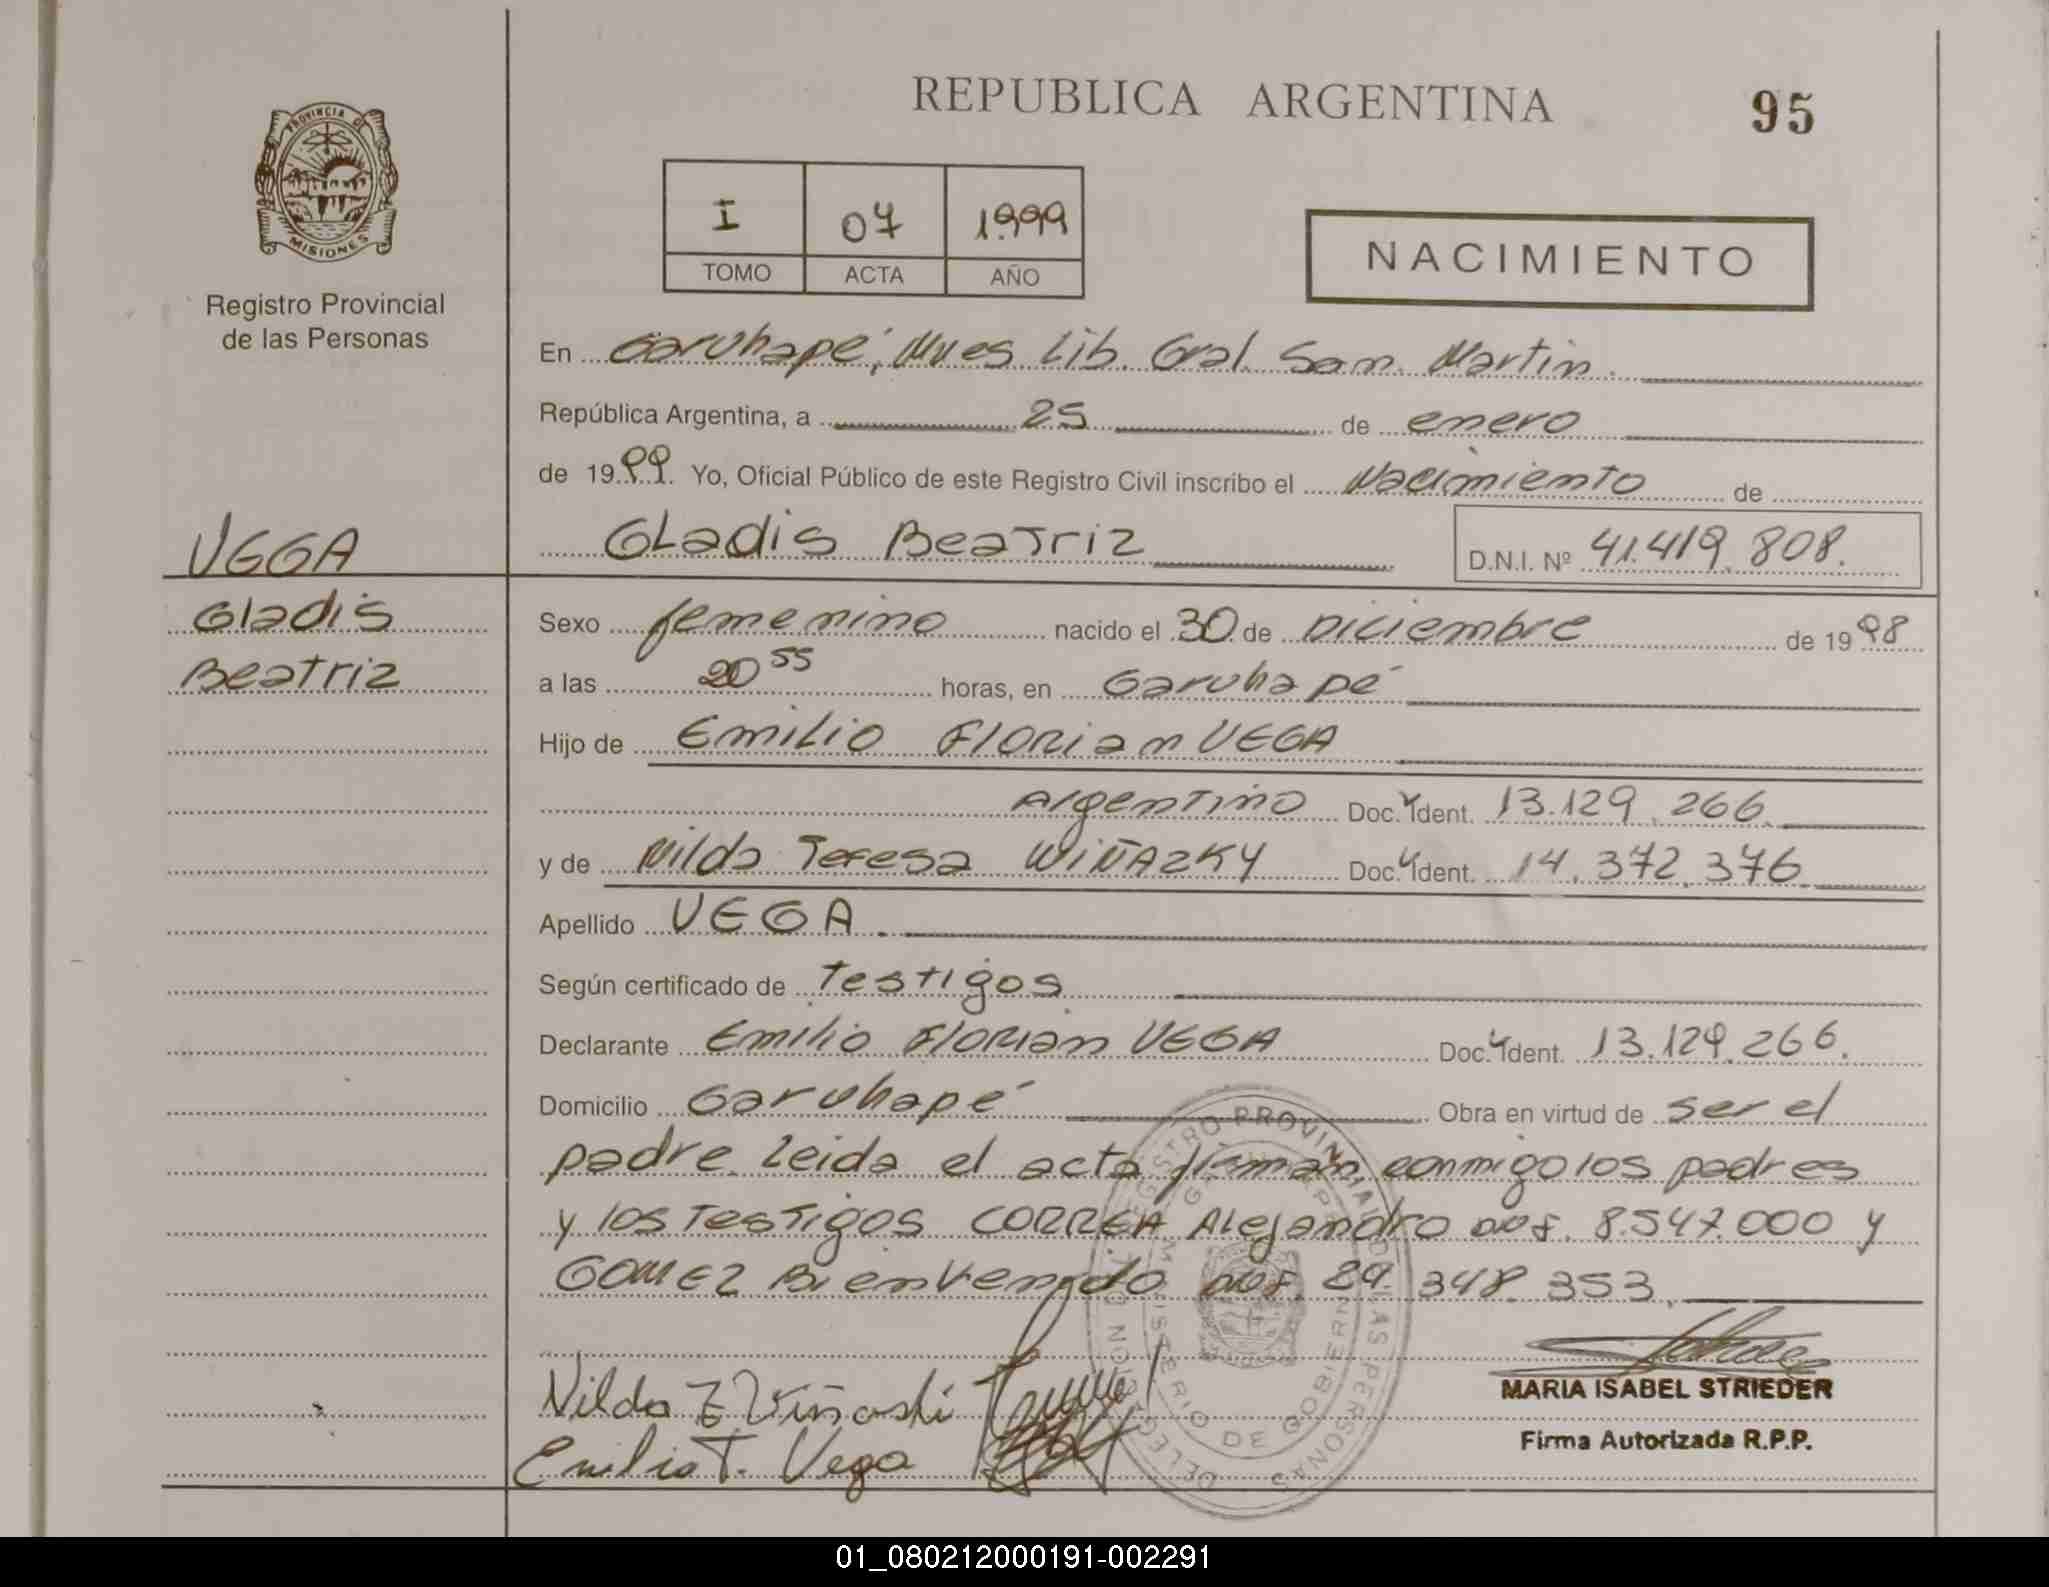 REPUBLICA ARGENTINA
95
PROVINCIA DE
MISIONES
Registro Provincial
de las Personas
I 07 1999
TOMO ACTA AÑO
NACIMIENTO
En Garuhapé, Mues Lib. Gral. San Martin.
República Argentina, a 25 de enero
de 1999. Yo, Oficial Público de este Registro Civil inscribo el Nacimiento de
VEGA
Gladis Beatriz D.N.I. Nº 41.419.808.
Gladis
Beatriz
Sexo femenino nacido el 30 de Diciembre de 1998
a las 20 55 horas, en Garuhapé
Hijo de Emilio Florian VEGA
Argentino Doc. Ident. 13.129.266
y de Nilda Teresa WIÑAZKY Doc. Ident. 14.372.376
Apellido VEGA.
Según certificado de Testigos
Declarante Emilio Florian VEGA Doc. Ident. 13.129.266.
Domicilio Garuhapé Obra en virtud de ser el
padre. Leida el acta firman conmigo los padres
y los Testigos CORREA Alejandro 8.547.000 y
GOMEZ Bienvenido 29.348.353.
Nilda Viñaski
Emilio Vega
MARIA ISABEL STRIEDER
Firma Autorizada R.P.P.
REGISTRO PROVINCIAL DE LAS PERSONAS
MINISTERIO DE GOBIERNO
01_080212000191-002291